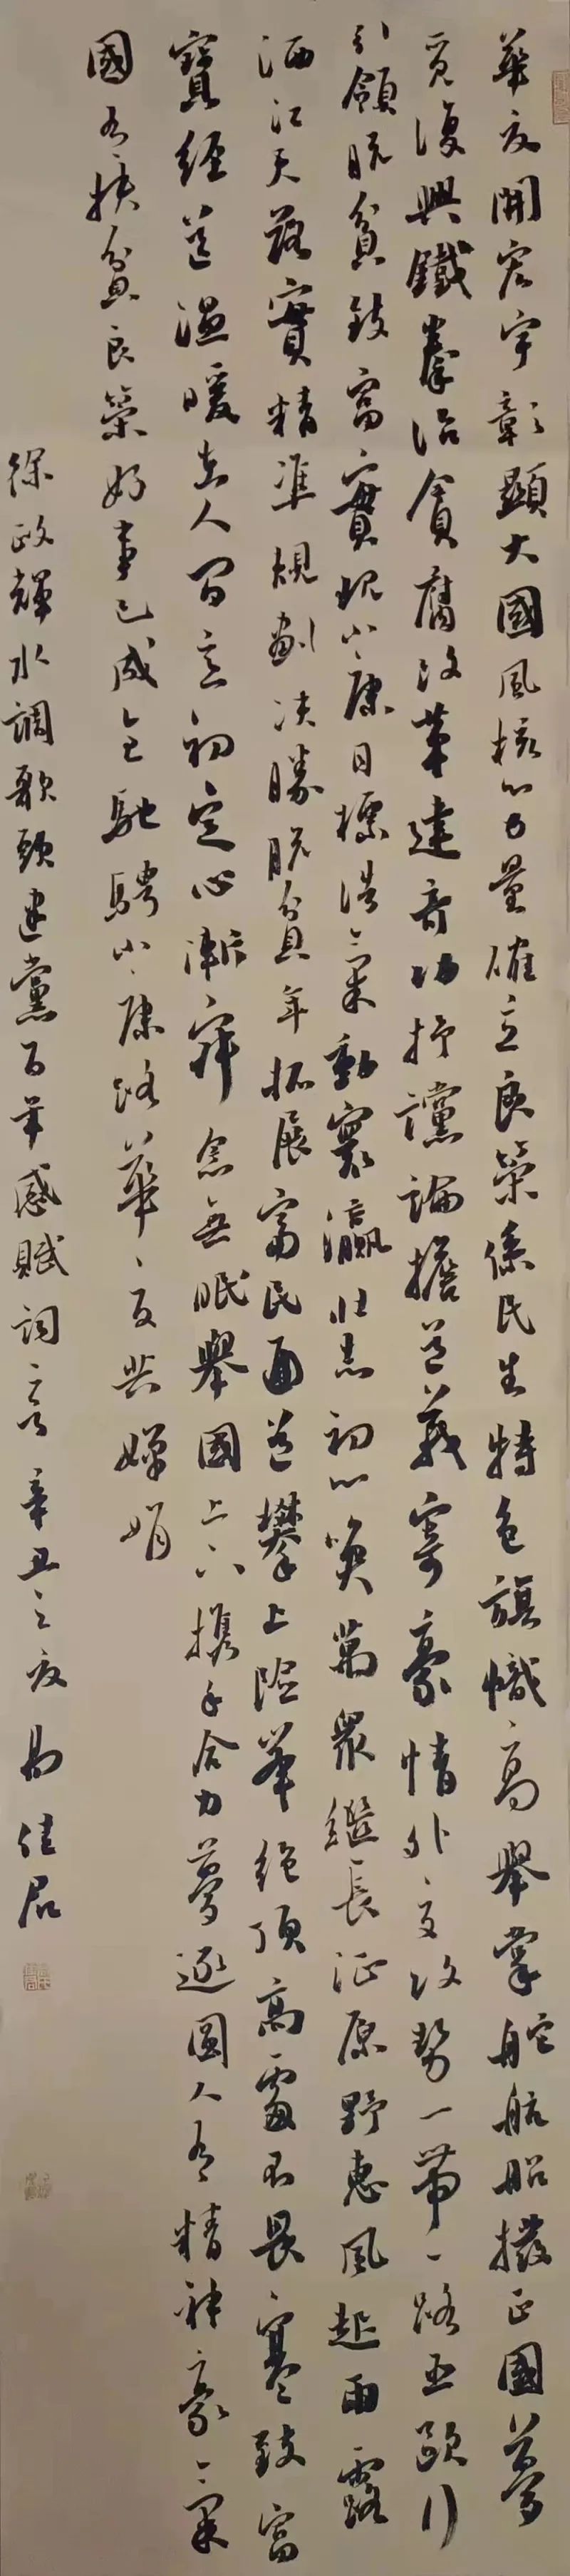 華夏開宏宇彰顯大國風核心力量確立良策係民生特色旗幟高舉掌舵航船撥正國夢
覓復興鐵拳治貪腐改革建奇功抒讜論擔道義寄豪情外交攻勢一帶一路亞歐行
引領脫貧致富實現小康目標浩氣動寰瀛壯志初心奐萬眾繼長征原野惠風起雨露
洒江天落實精準規劃決勝脫貧年拓展富民通道攀上險峯絕頂高處不畏寒致富
寶經送溫暖在人間立初定心漸寐念無眠舉國上下攜手合力夢逐國人有精神豪氣
國有扶貧良策好事已成全馳騁小康路華夏共嬋娟
徐政輝水調歌頭建黨百年感賦詞意辛丑之夏易佳君